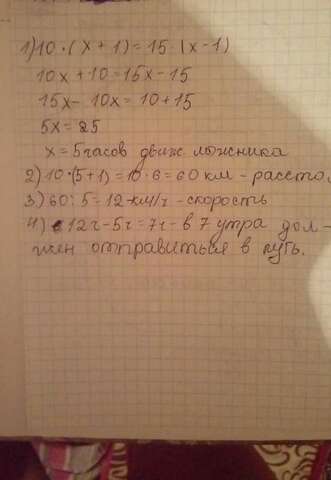 1) 10 · (x + 1) = 15 · (x - 1)
10x + 10 = 15x - 15
15x - 10x = 10 + 15
5x = 25
x = 5 часов движ. лыжника
2) 10·(5+1) = 10 · 6 = 60 км - рассто
3) 60 : 5 = 12 км/ч - скорость
4) 12ч - 5ч = 7ч - в 7 утра дол-
жен отправиться в путь.